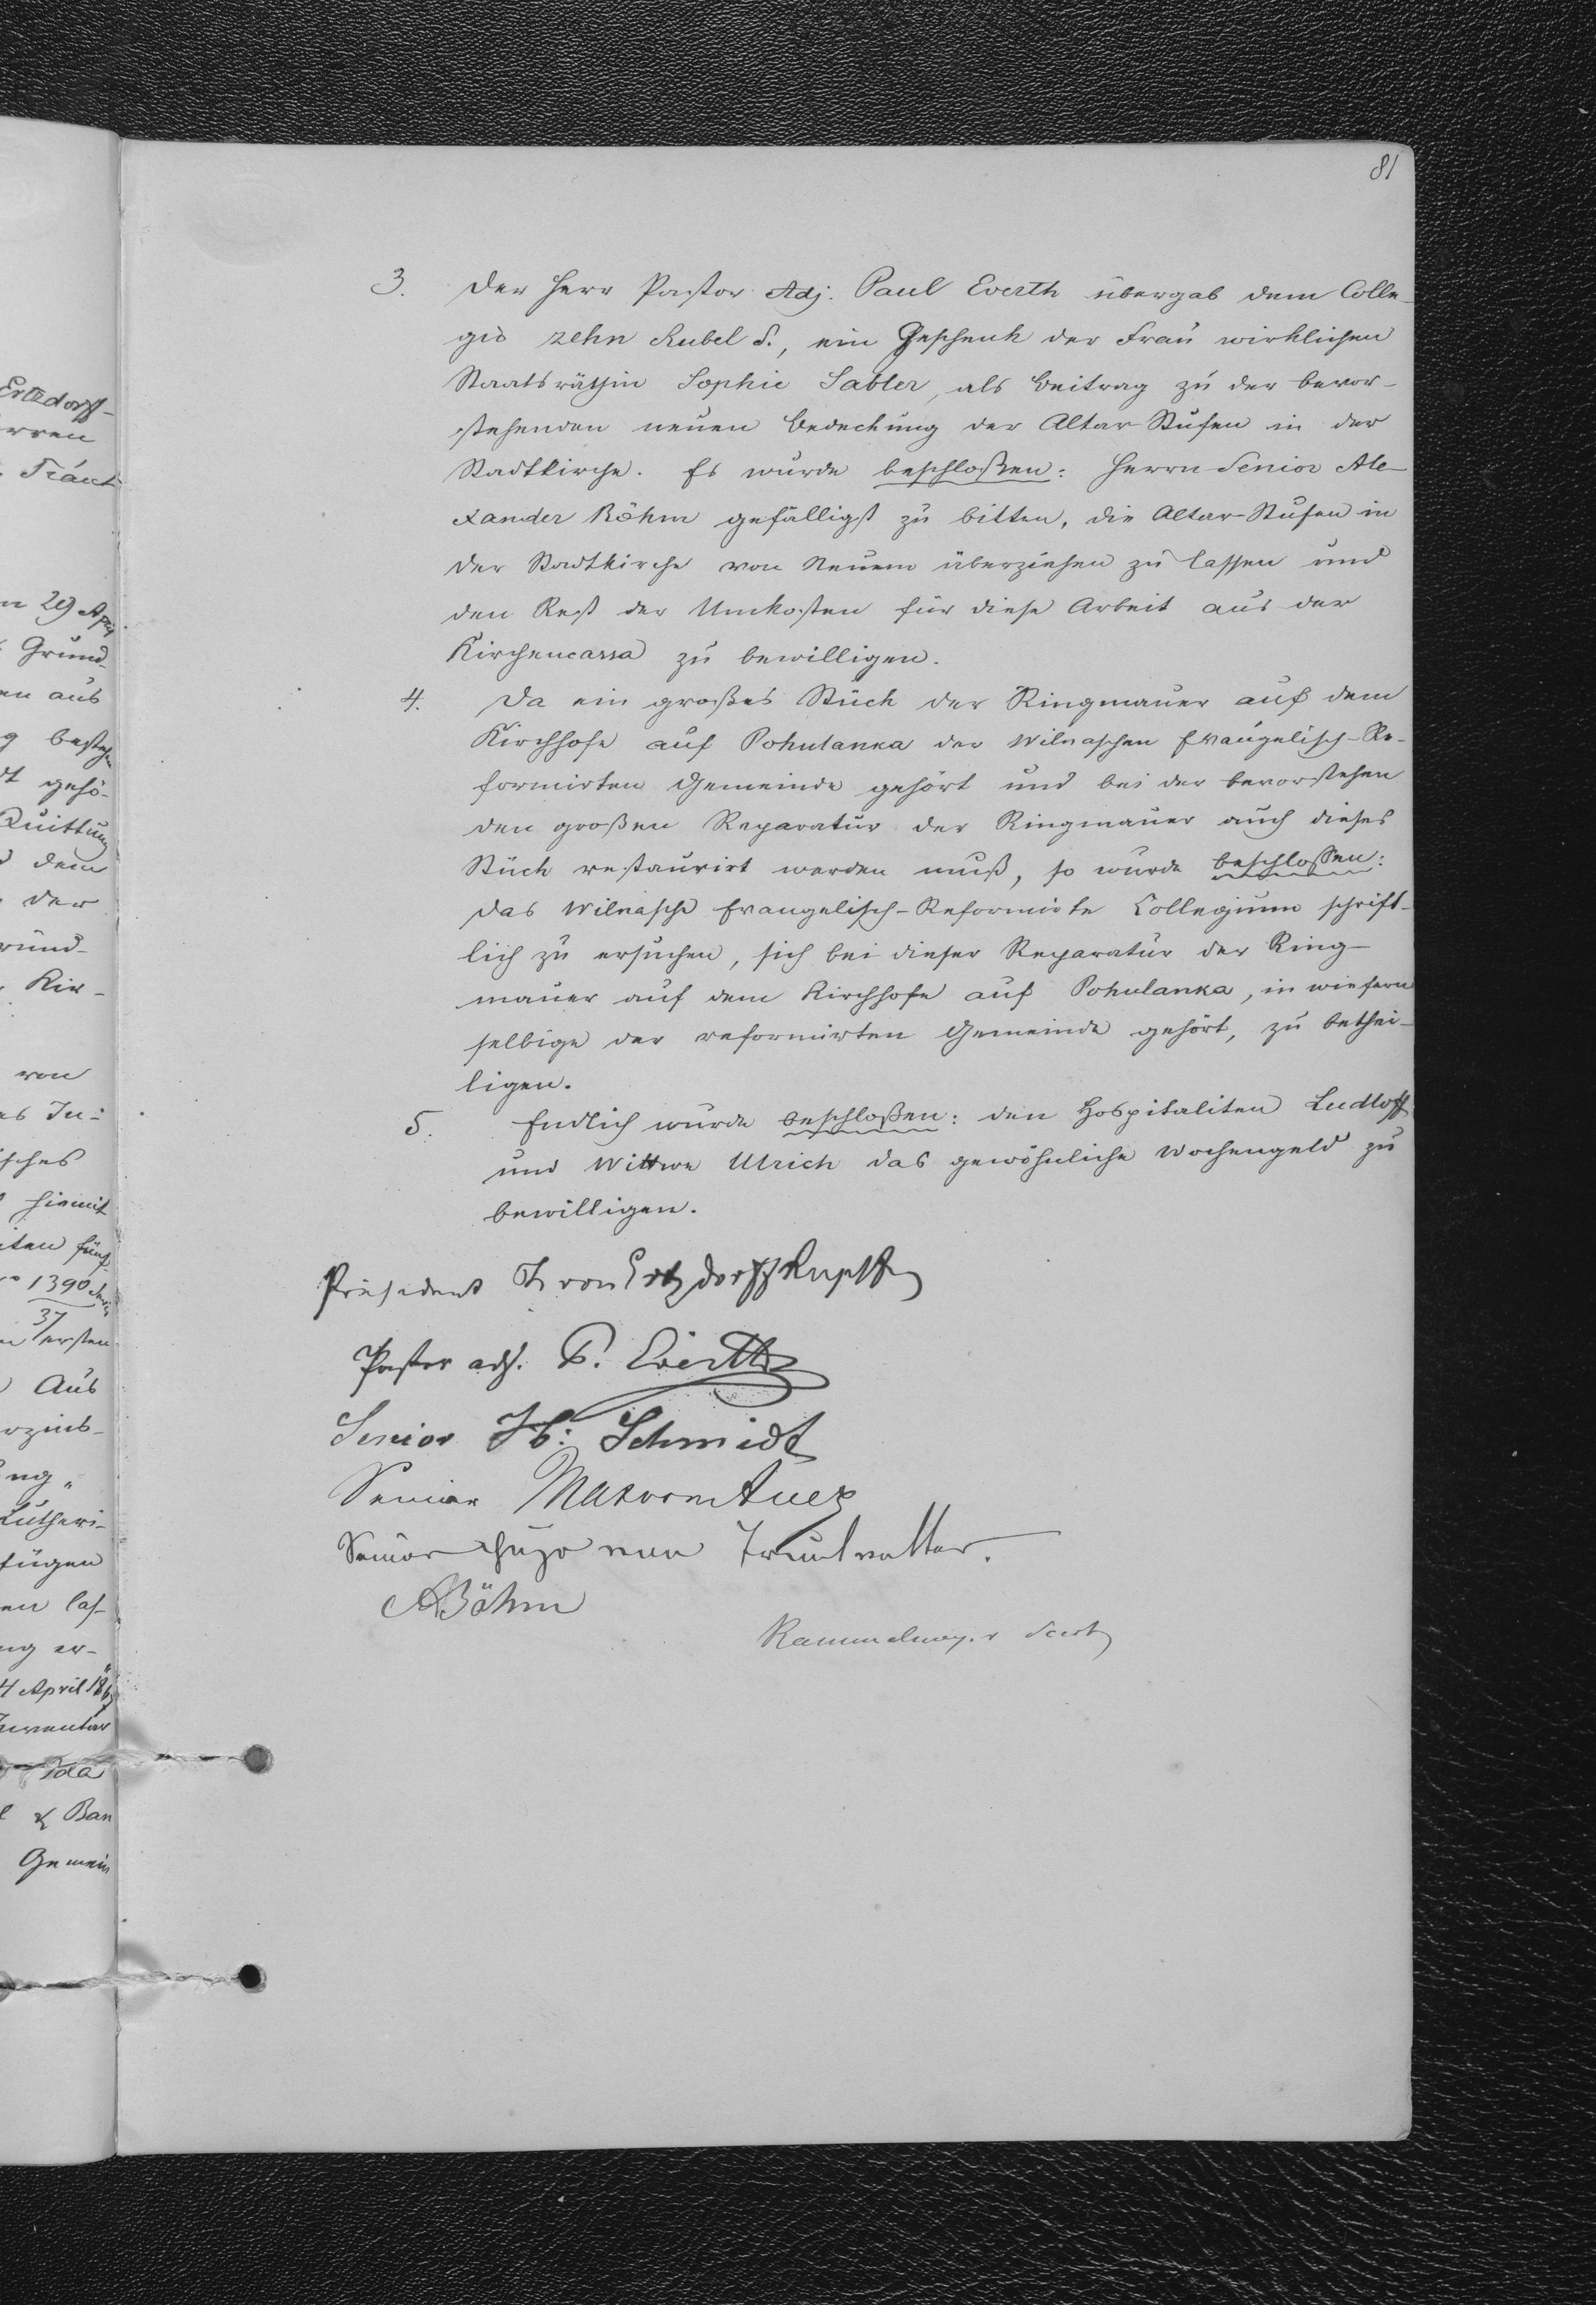 81
3. Der Herr Pastor Adj. Paul Everth übergab dem Colle-
gio zehn Rubel S., ein Geschenk der Frau wirklichen
Staatsräthin Sophie Sabler, als Beitrag zu der bevor-
stehenden neuen Bedeckung der Altar-Stufen in der
Stadtkirche. Es wurde beschloßen: Herrn Senior Ale-
xander Böhm gefälligst zu bitten, die Altar-Stufen in
der Stadtkirche von Neuem überziehen zu lassen und
den Rest der Unkosten für diese Arbeit aus der
Kirchencassa zu bewilligen.
4. Da ein großes Stück der Ringmauer auf dem
Kirchhofe auf Pohulanka der Wilnaschen Evangelisch-Re-
formirten Gemeinde gehört und bei der bevorstehen
den großen Reparatur der Ringmauer auch dieses
Stück restaurirt werden muß, so wurde beschlossen:
das Wilnasche Evangelisch-Reformirte Collegium schrift-
lich zu ersuchen, sich bei dieser Reparatur der Ring-
mauer auf dem Kirchhofe auf Pohulanka, in wiefern
selbige der reformirten Gemeinde gehört, zu bethei-
ligen.
5. Endlich wurde beschloßen: den Hospitaliten Ludloff
und Wittwe Ulrich das gewöhnliche Wochengeld zu
bewilligen.
Präsident von Ertzdorff Kupffer
Pastor adj. P. Everth
Senior Schmidt
Senior
Senior Hugo von Trautvetter.
ABöhm
Rammelmeyer Secrt